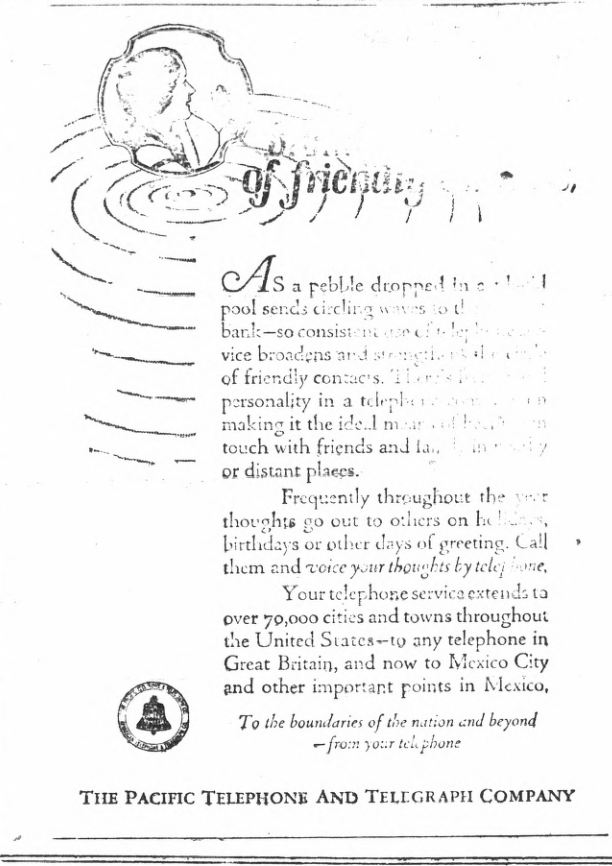 of friendly
AS a pebble dropped in a
pool sends circling waves to
bank—so consistent use of telephone
vice broadens and strengthens the circle
of friendly contacts. There's
personality in a telephone
making it the ideal means of
touch with friends and family in
or distant places.
Frequently throughout the year
thoughts go out to others on holidays,
birthdays or other days of greeting. Call
them and voice your thoughts by telephone.
Your telephone service extends to
over 70,000 cities and towns throughout
the United States—to any telephone in
Great Britain, and now to Mexico City
and other important points in Mexico.
To the boundaries of the nation and beyond
—from your telephone
THE PACIFIC TELEPHONE AND TELEGRAPH COMPANY